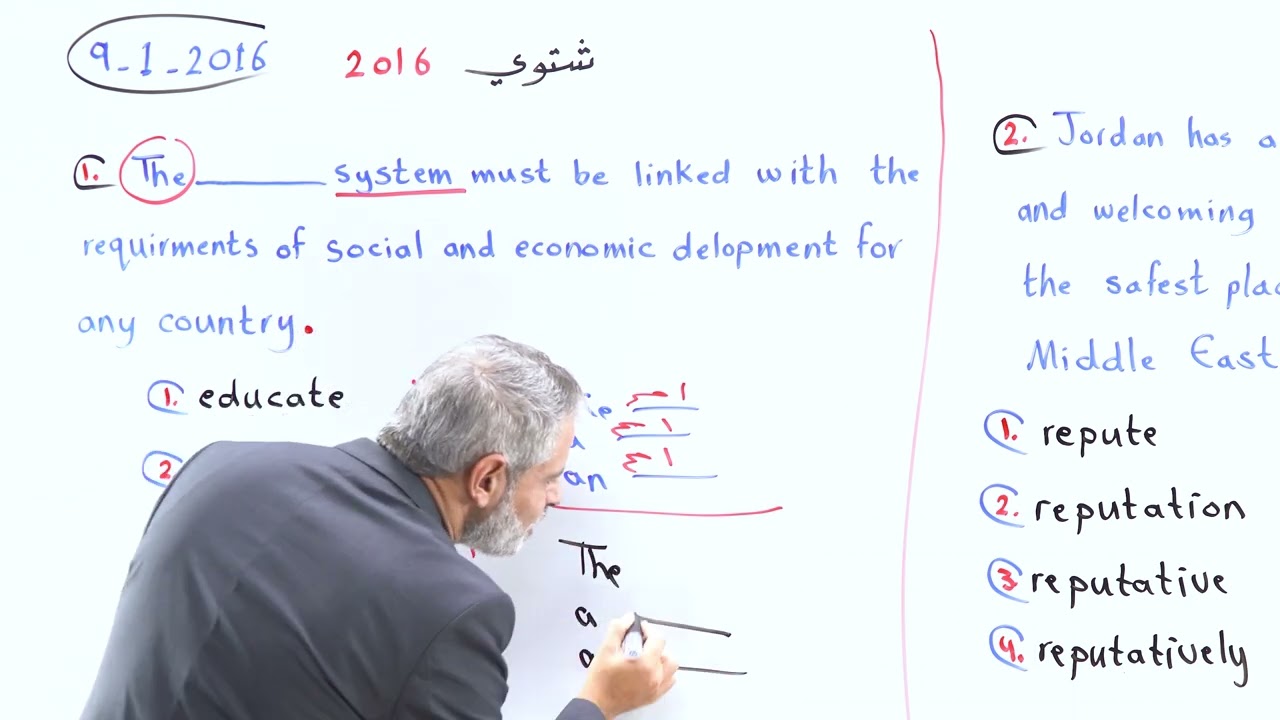 9-1-2016 2016 شتوي
1. The ________ system must be linked with the
requirments of social and economic delopment for
any country.
1. educate
2
ا س
ا ع
an ا ع
The
a
2. Jordan has a
and welcoming
the safest plac
Middle East
1. repute
2. reputation
3. reputative
4. reputatively